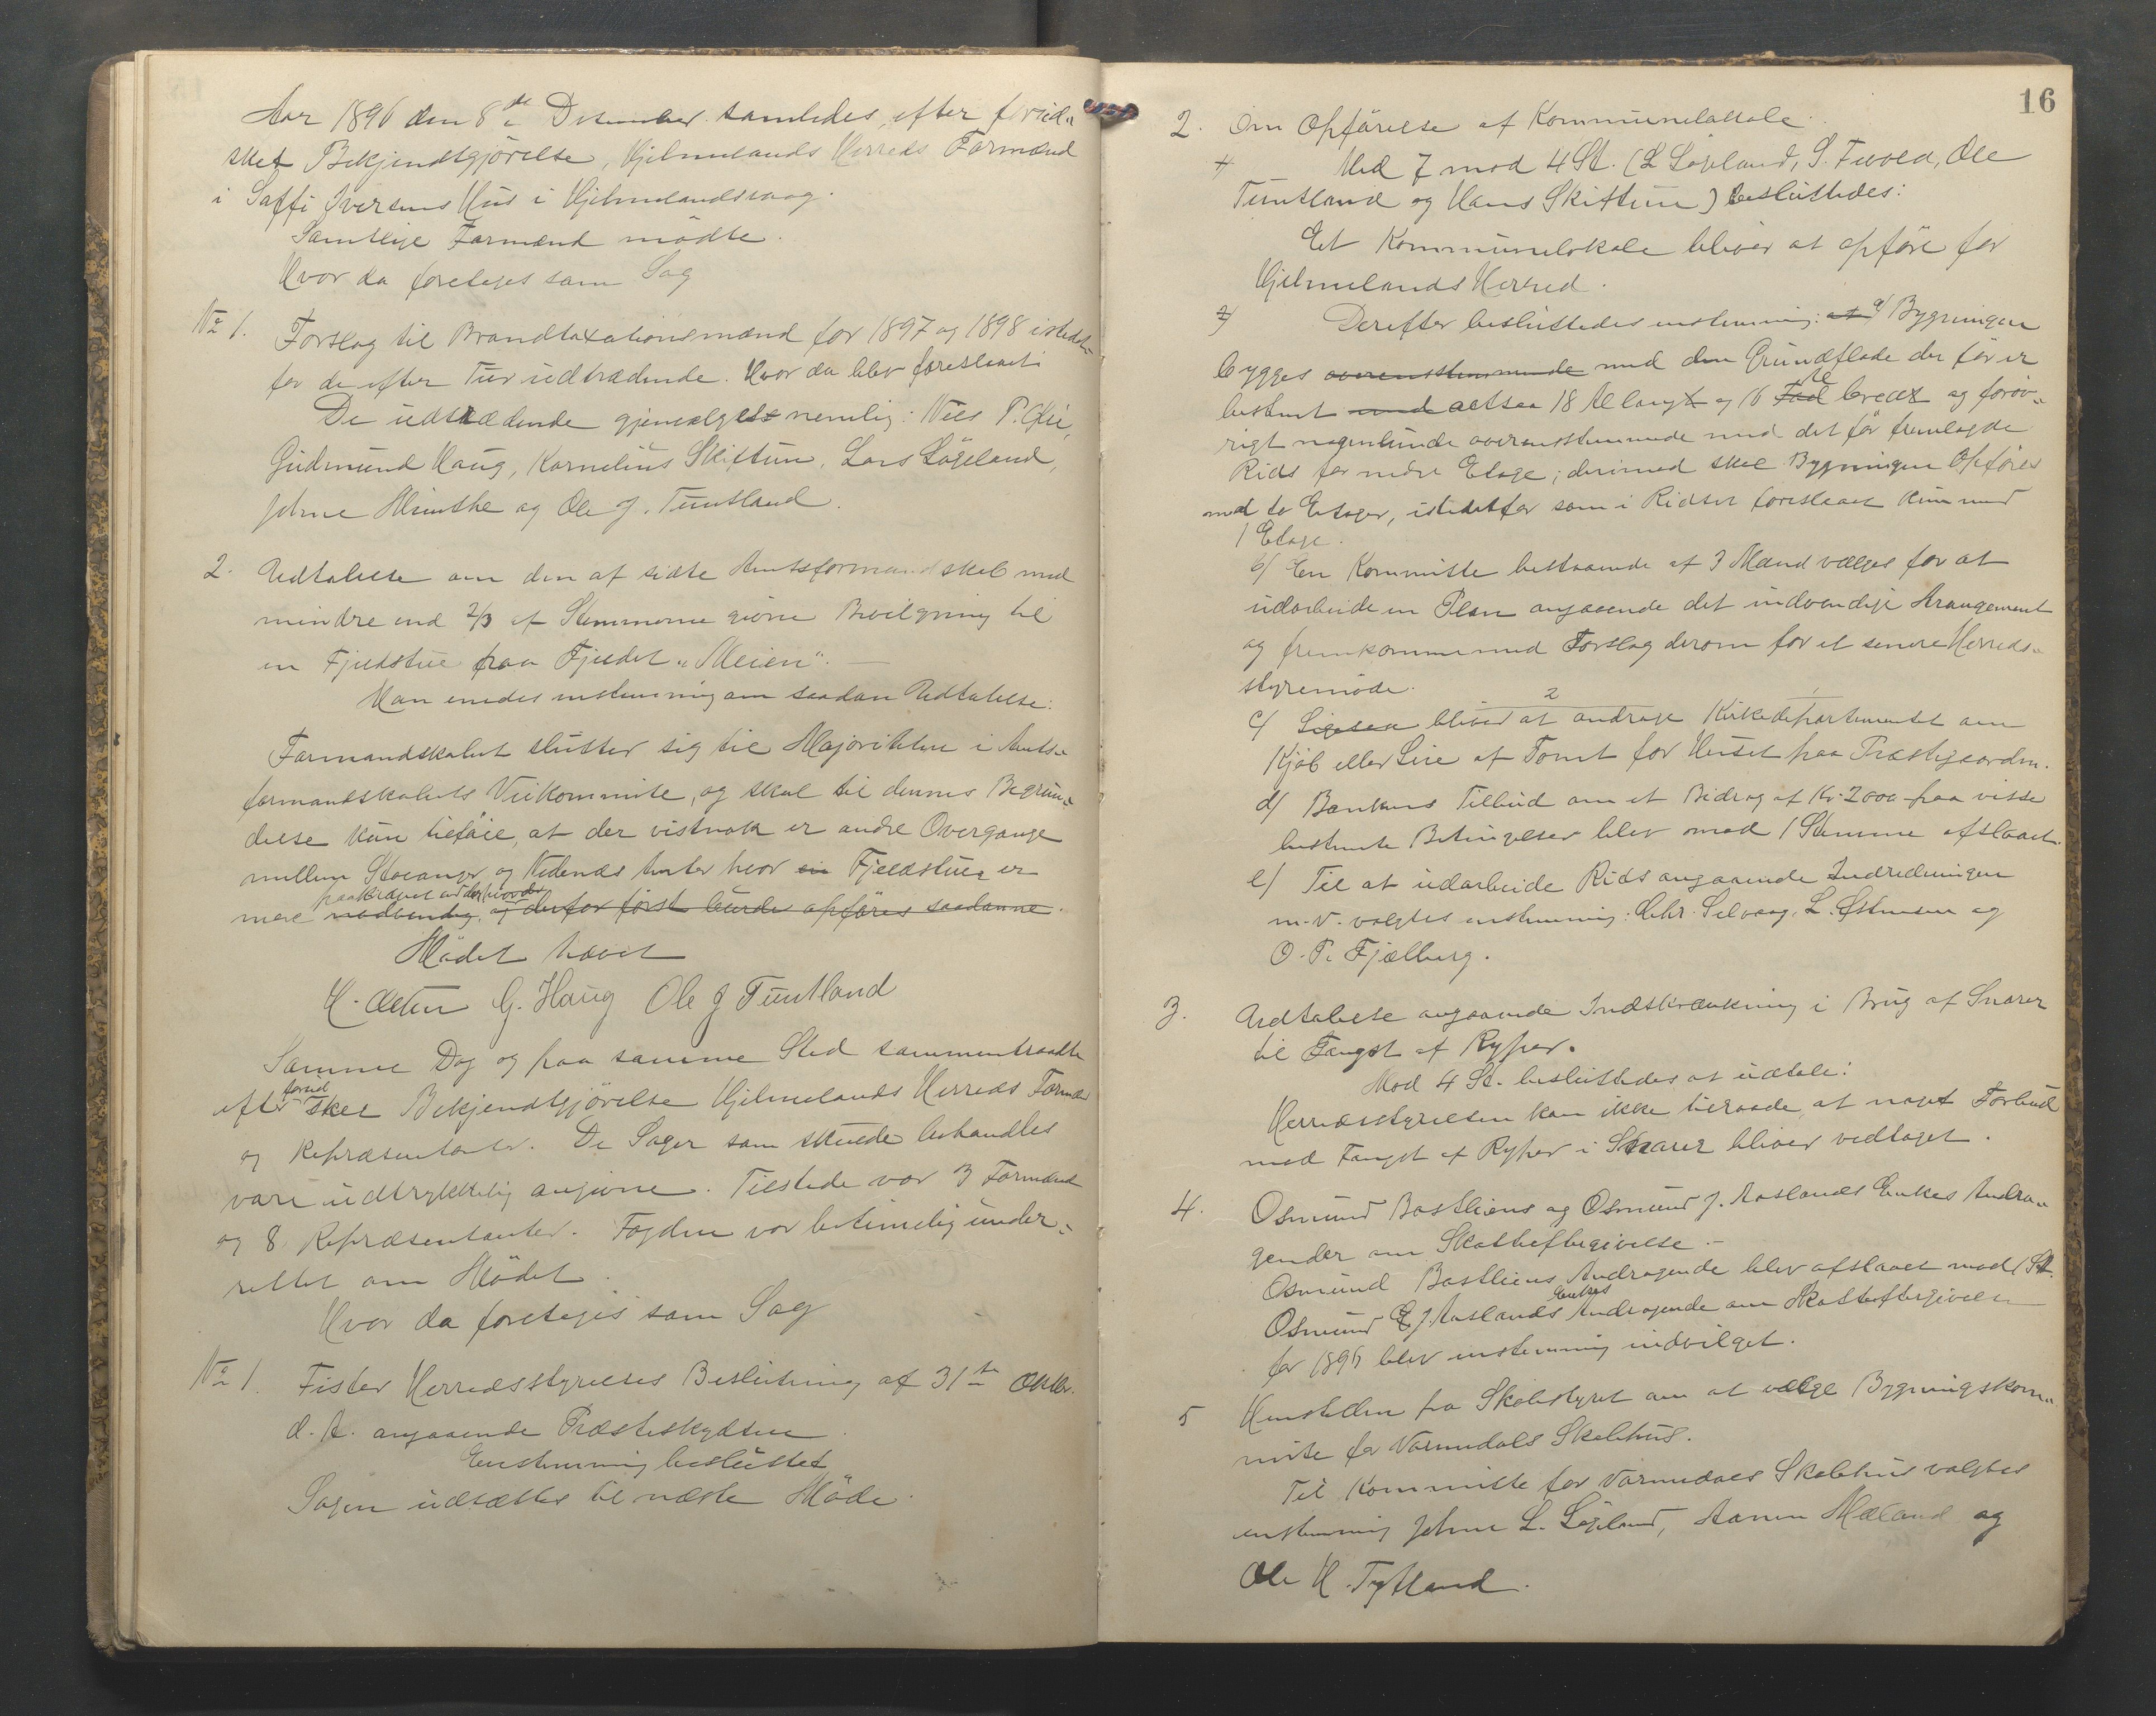 Aar 1896 den 8de Desember samledes, efter forud-
sket Bekjendtgjörelse, Hjelmelands Herreds Formænd
i Saffi Iversens Hus i Hjelmelandsvaag.
Samtlige Formænd mödte.
Hvor da foretoges som Sag
No 1. Forslag til Brandtaxationsmænd for 1897 og 1898 istedet-
for de efter Tur udtrædende. Hvor da blev foreslaaet:
De udtrædende gjenvalgtes nemlig: Niels P.
Gudmund Haug, Kornelius Skiftun, Lars Lögeland,
Johne og Ole J. Tuntland.
2. Udtalelse om den af sidste Amtsformandskab med
mindre end 2/3 af Stemmerne givne Bevilgning til
en Fjeldstue paa Fjeldet "Meien". —
Man enedes enstemmig om saadan Udtalelse:
Formandskabet slutter sig til Majoriteten i Amts-
formandskabets Veikommite, og skal til dennes Begrun-
delse kun tilföie, at der vistnok er andre Overgange
mellem Stavanger og Nedenæs Amter hvor en Fjeldstue er
paakrævet
mere nödvendig, og derfor först burde opföres saadanne.
Mödet hævet
G. Haug Ole J Tuntland
Samme Dag og paa samme Sted sammentraadte
forud
efter skel Bekjendtgjörelse Hjelmelands Herreds Formænd
og Repræsentanter. De Sager som skulde behandles
vare udtrykkelig angivne. Tilstede var 3 Formænd
og 8 Repræsentanter. Fogden var betimelig under-
rettet om Mödet.
Hvor da foretoges som Sag
No 1. Fister Herredsstyrelses Beslutning af 31te Oktbr.
d. A. angaaende Præsteskydsen.
Enstemmig besluttet
Sagen udsættes til næste Möde.
16
2. Om Opförelse af Kommunelokale.
Med 7 mod 4 St. (L Lögeland, S. Tveea, Ole
Tuntland og Hans Skiftun) besluttedes:
Et Kommunelokale bliver at opföre for
Hjelmelands Herred.
Derefter besluttedes enstemmig: at a/ Bygningen
bygges overensstemmende med den Grundflade der för er
bestemt med altsaa 18 Al lang og 16 Al bred og forov-
rigt nogenlunde overensstemmende med det för fremlagde
Rids for nedre Etage; derimod skal Bygningen Opföres
med to Etager, istedetfor som i Ridset foreslaaet kun med
1 Etage.
b/ En Kommitte bestaaende af 3 Mænd vælges for at
udarbeide en Plan angaaende det indvendige Arangement
og fremkomme med Forslag derom for et senere Herreds-
styremöde.
2
c/ Ligesaa bliver at andrage Kirkedepartementet om
Kjöb eller Leie af Tomt for Huset paa Præstegaarden.
d/ Bankens Tilbud om et Bidrag af Kr. 2000 paa visse
bestemte Betingelser blev mod 1 Stemme afslaaet.
e/ Til at udarbeide Rids angaaende Indredningen
m.v. valgtes enstemmig: Chr. Selvaag, L. Østensen og
O. P. Fjælberg.
3. Udtalelse angaaende Indskrænkning i Brug af Snarer
til Fangst af Ryper.
Mod 4 St. besluttedes at udtale:
Herredsstyrelsen kan ikke tilraade, at noget Forbud
mod Fangst af Ryper i Snarer bliver vedtaget.
4. Osmund Bastliens og Osmund J. Aaslands Enkes Andra-
gender om Skatteeftergivelse. —
Osmund Bastliens Andragende blev afslaaet mod 1 St.
Enkes
Osmund J. Aaslands Andragende om Skatteeftergivelse
for 1896 blev enstemmig indvilget.
5 Henstillen fra Skolestyret om at vælge Bygningskom-
mite for Vormedals Skolehus.
Til Kommitte for Vormedals Skolehus valgtes
enstemmig Johne L. Lögeland, Aanen Mæland og
Ole H. Tytland.